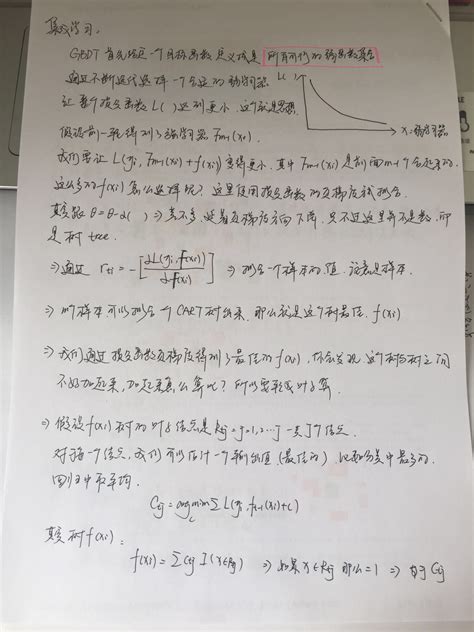 集成学习:
GBDT 首先给定一个目标函数 定义域是 所有可行的弱函数集合
通过不断迭代选择一个合适的弱学习器
L
让整个损失函数 L( ) 达到更小, 这个就是思想.
x=弱学习器
假设前一轮得到了强学习器 Fm-1(xi).
我们要让 L(yi, Fm-1(xi)+f(xi)) 变得更小, 其中 Fm-1(xi) 是前面m-1个
这么多的f(xi) 怎么选择呢? 这里使用损失函数的负梯度来拟合.
θ=θ-α( ) ⇒ 差不多, 沿着负梯度方向下降, 只不过这里并不是数, 即
是 树 tree.
⇒ 通过 rti = -[∂L(yi, f(xi))/∂f(xi)] ⇒ 拟合一个样本的值. 注意是样本.
⇒ m个样本可以拟合一个CART树出来, 那么就是这个树最佳. f(xi)
⇒ 我们通过损失函数负梯度得到了最佳的f(xi), 你会发现 这个树与树之间
不好加起来, 加起来怎么算呢? 所以要靠叶子算.
⇒ 假设f(xi)树的叶子结点是 Rtj = j=1,2...J 一共J个结点
对于每一个结点, 我们可以估计一个输出值 (最佳的), 比如分类中最多的,
回归中平均.
Ctj = argmin c ∑ L(yi, ft-1(xi)+c)
树f(xi):
f(xi) = ∑ Ctj I(x∈Rtj) ⇒ 如果 x∈Rtj 那么=1 ⇒ 由于 Ctj